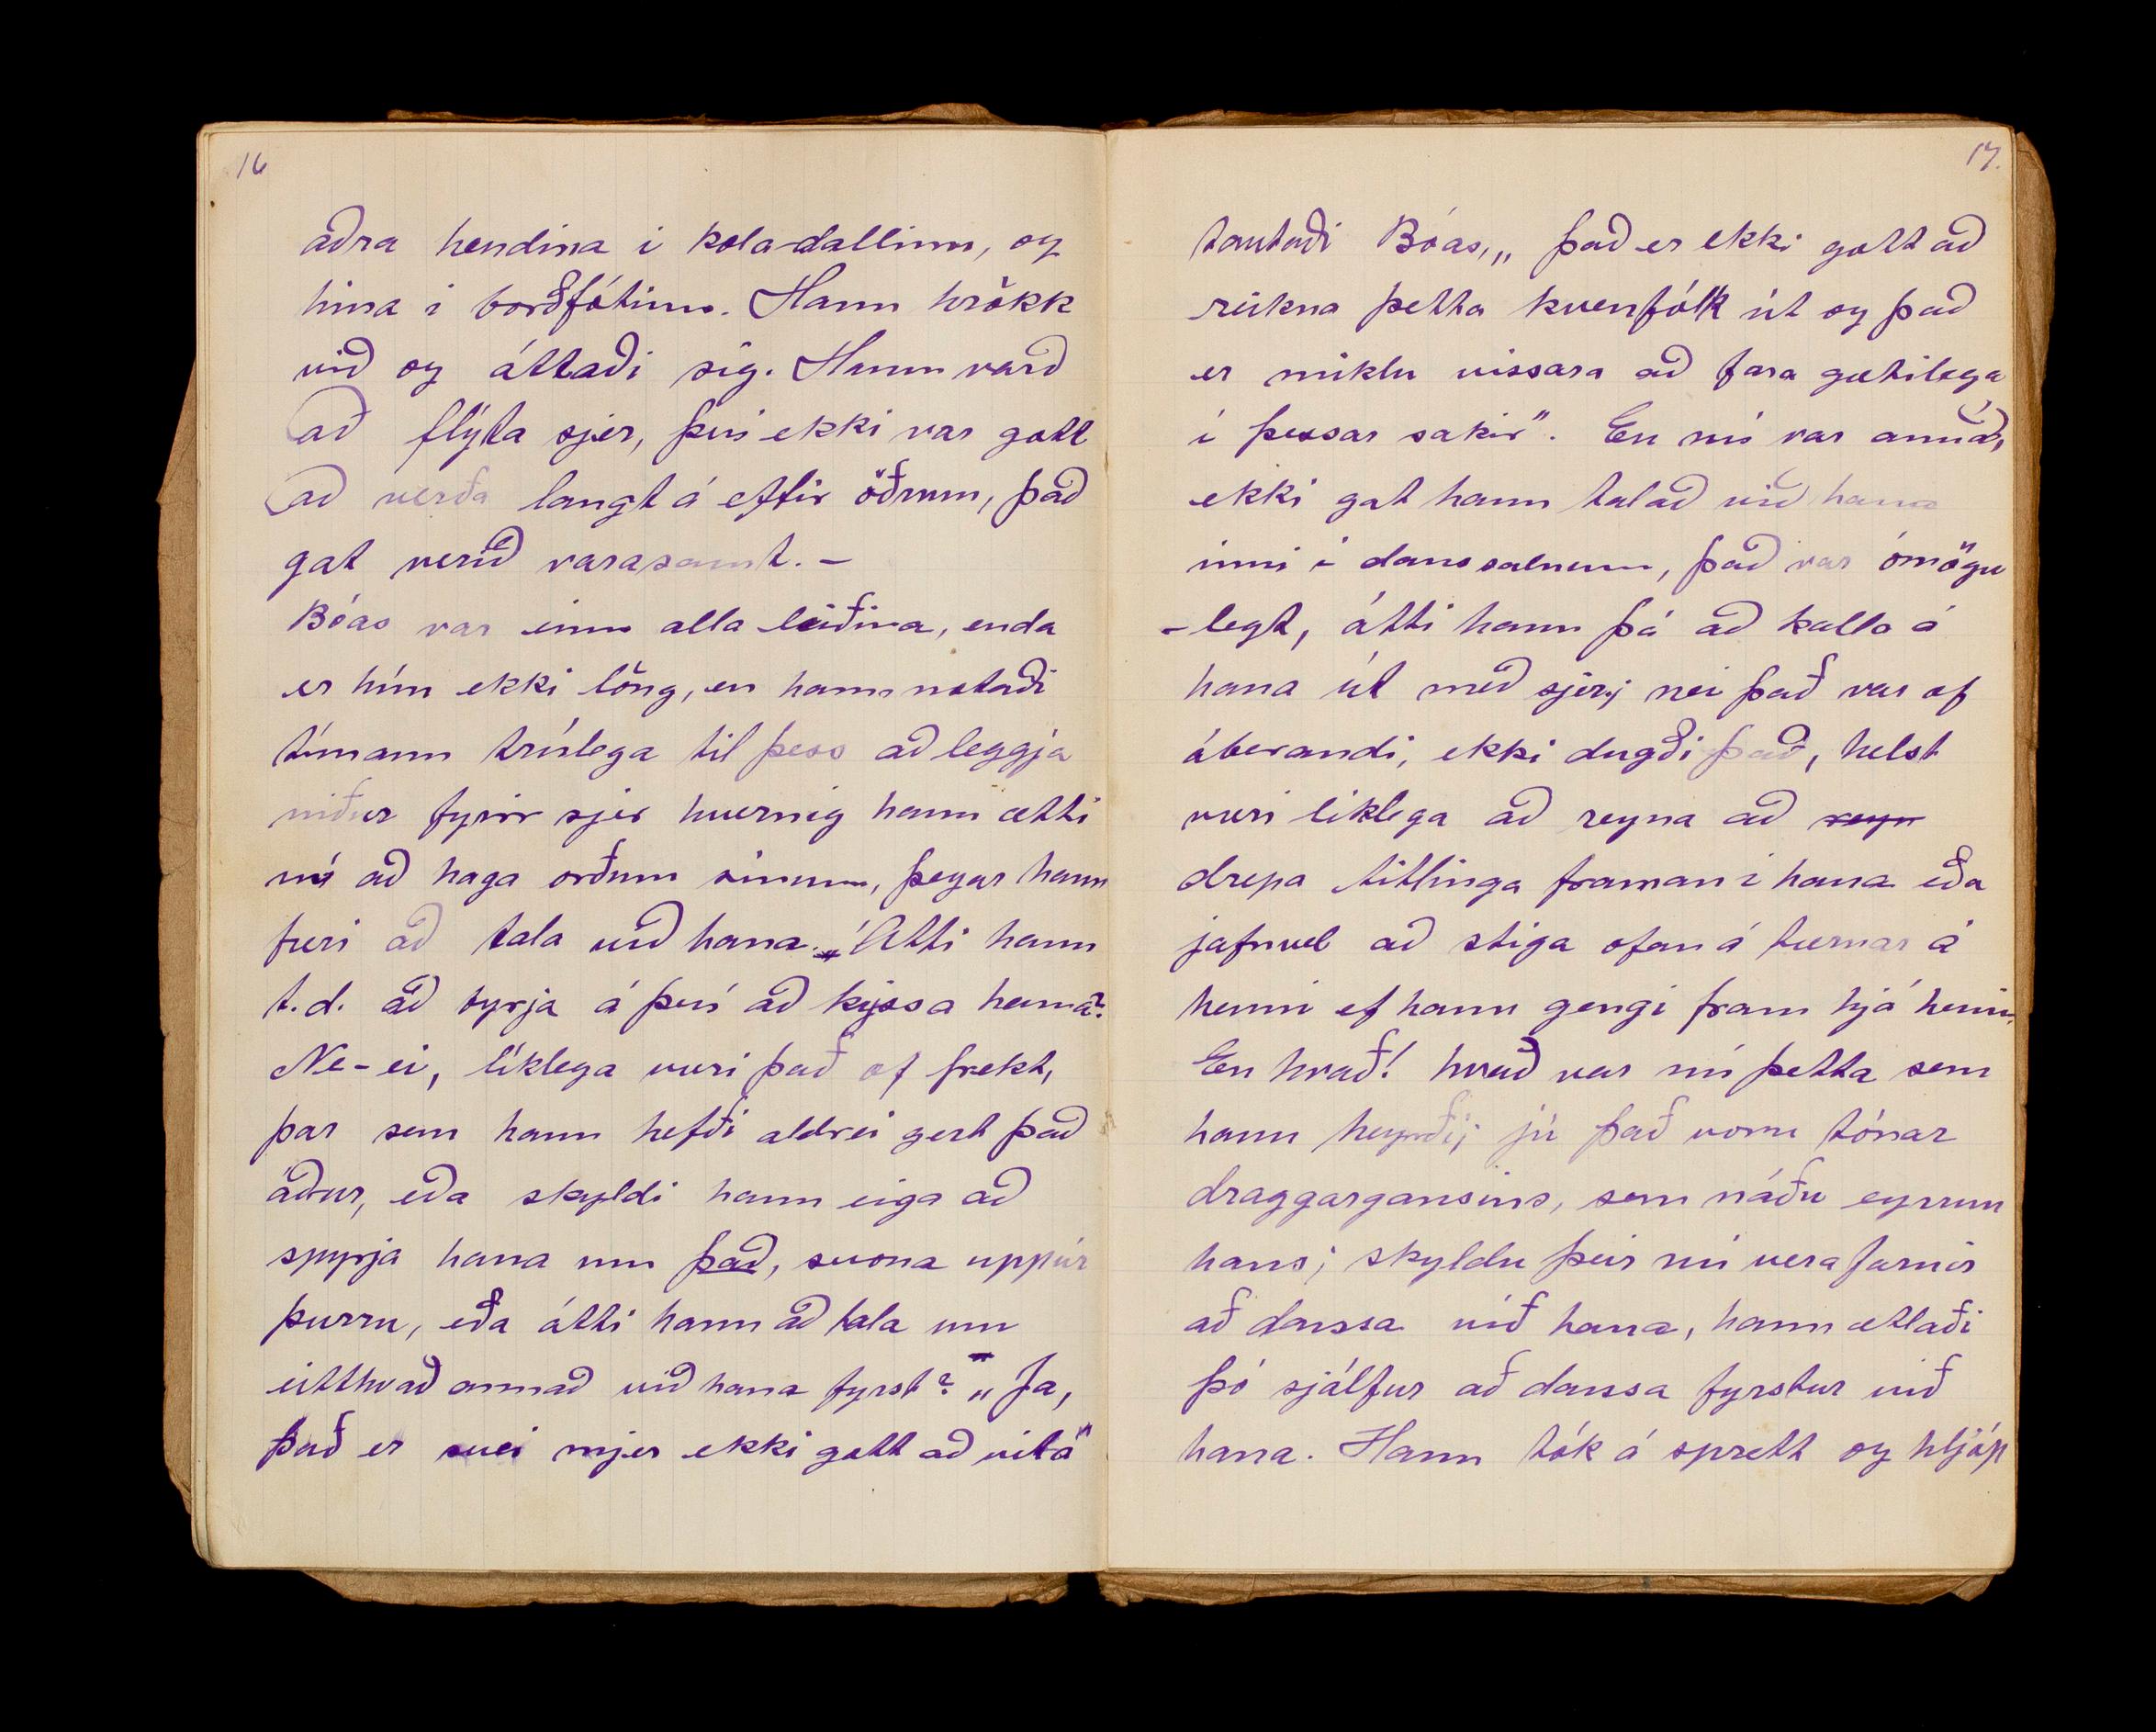 16
aðra hendina i kola-dallinn, og
hina i borðfótinn. Hann hrökk
við og áttaði sig. Hann varð
að flýta sjer, þvi ekki var gott
að verða langt á eftir öðrum, það
gat verið varasamt. –
Bóas var einn alla leiðina, enda
er hún ekki löng, en hann notaði
tímann trúlega til þess að leggja
niður fyrir sjer hvernig hann ætti
nú að haga orðum sinum, þegar hann
færi að tala við hana. Átti hann
t.d. að byrja á því að kyssa hana?
Ne-ei, líklega væri það of frekt,
þar sem hann hefði aldrei gert það
áður, eða skyldi hann eiga að
spyrja hana um það, svona uppúr
þurru, eða átti hann að tala um
eitthvað annað við hana fyrst? „Ja,
það er svei mjer ekki gott að vita"
17.
tautaði Bóas, „það er ekki gott að
reikna þetta kvenfólk út og það
er miklu vissara að fara gætilega
í þessar sakir". En nú var annað,
ekki gat hann talað við hana
inni i danssalnum, það var ómögu
-legt, átti hann þá að kalla á
hana út með sjer; nei það var of
áberandi, ekki dugði það, helst
væri liklega að reyna að reyn
drepa titlinga framan i hana eða
jafnvel að stiga ofan á tærnar á
henni ef hann gengi fram hjá henni.
En hvað! hvað var nú þetta sem
hann heyrði; jú það voru tónar
draggargansins, sem náðu eyrum
hans; skyldu þeir nú vera farnir
að dansa við hana, hann ætlaði
þó sjálfur að dansa fyrstur við
hana. Hann tók á sprett og hljóp